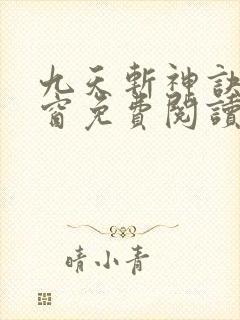 九天斬神訣
窗免費閱讀
晴小青